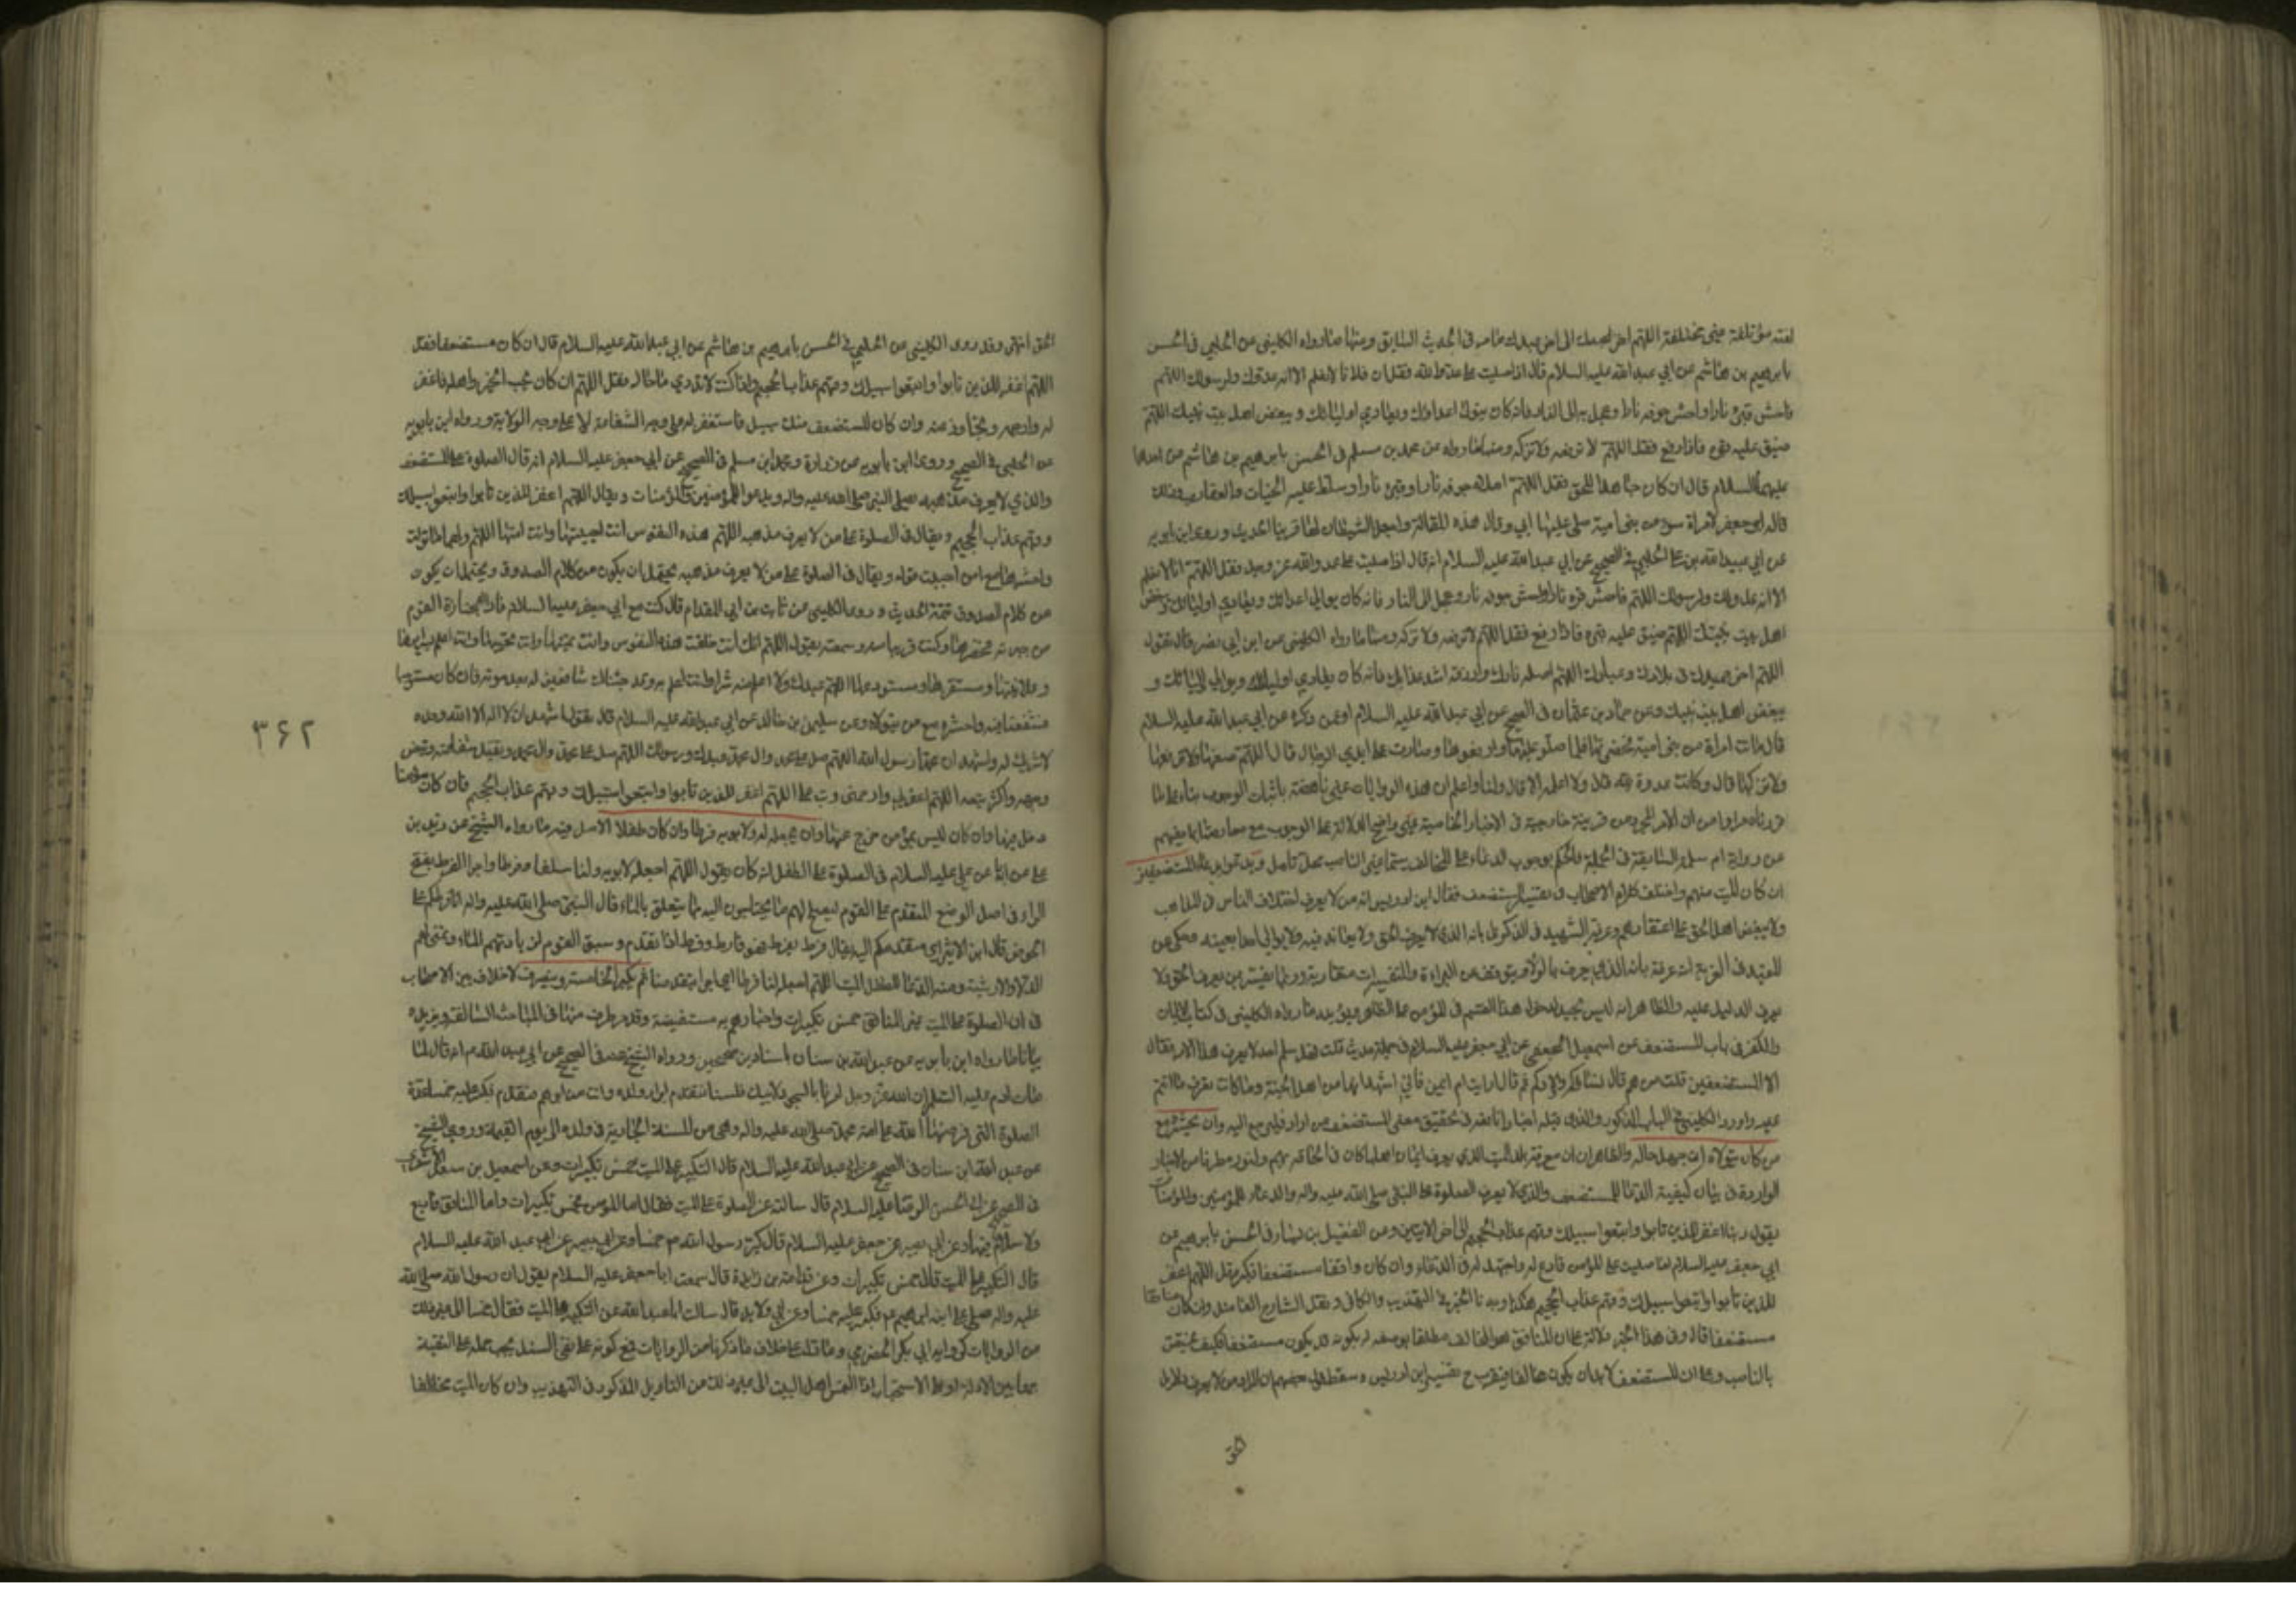 لعنة مؤتلفة غير مختلفة اللهم اخز عبدك الى اخر ما مر في الحديث السابق ومنها ما رواه الكليني عن الحلبي في الحسن
بابرهيم بن هاشم عن ابي عبد الله عليه السلام قال اذا صليت على عدو الله فقل ان فلانا لا نعلم الا انه عدو لك ولرسولك اللهم
فاحش قبره نارا واحش جوفه نارا وعجل به الى النار فانه كان يتولى اعداءك ويعادي اوليائك ويبغض اهل بيت نبيك اللهم
ضيق عليه قبره فاذا رفع فقل اللهم لا ترفعه ولا تزكه ومنها ما رواه عن محمد بن مسلم في الحسن بابرهيم بن هاشم عن احدهما
عليهما السلام قال ان كان جاحدا للحق فقل اللهم املاء جوفه نارا وقبره نارا وسلط عليه الحيات والعقارب وذلك
قاله ابو جعفر لامراة سوء من بني امية صلى عليها ابي وقال هذه المقالة واجعل الشيطان لها قرينا الحديث وروى ابن بابويه
عن ابي عبيد الله بن علي الحلبي في الصحيح عن ابي عبد الله عليه السلام انه قال اذا صليت على عدو الله عز وجل فقل اللهم انا لا نعلم
الا انه عدو لك ولرسولك اللهم فاحش قبره نارا واحش جوفه نارا وعجل به الى النار فانه كان يوالي اعدائك ويعادي اوليائك ويبغض
اهل بيت نبيك اللهم ضيق عليه قبره فاذا رفع فقل اللهم لا ترفعه ولا تزكه ومنها ما رواه الكليني عن ابن ابي نصر قال تقول
اللهم اخز عبدك في بلادك وعبادك اللهم اصله نارك واذقه اشد عذابك فانه كان يعادي اوليائك ويوالي اعدائك و
يبغض اهل بيت نبيك وعن حماد بن عثمان في الصحيح عن ابي عبد الله عليه السلام او عمن ذكره عن ابي عبد الله عليه السلام
قال ماتت امراة من بني امية فحضرتها فلما صلوا عليها ورفعوها وصارت على ايدي الرجال قال اللهم ضعها ولا ترفعها
ولا تزكها قال وكانت عدوة لله قال ولا اعلمه الا قال ولنا واعلم ان هذه الروايات غير ناهضة باثبات الوجوب بناء على ما
قررناه مرارا من ان الامر المجرد عن قرينة خارجية في الاخبار الخاصية غير واضح الدلالة على الوجوب مع معارضتها بما يفهم
من رواية ام سلمة السابقة في الجملة فالحكم بوجوب الدعاء على المخالف سيما غير الناصب محل تامل ويدعو بدعاء المستضعفين
ان كان الميت منهم واختلف كلام الاصحاب في تفسير المستضعف فقال ابن ادريس انه من لا يعرف اختلاف الناس في المذاهب
ولا يبغض اهل الحق على اعتقادهم وعرفه الشهيد في الذكرى بانه الذي لا يعرف الحق ولا يعاند فيه ولا يوالي احدا بعينه وحكي عن
المفيد في الغرية انه عرفه بانه الذي يعرف بالولاء ويتوقف عن البراءة والتفسيرات متقاربة وربما يفسر بمن يعرف الحق ولا
يعرف الدليل عليه والظاهر انه ليس بجيد لدخول هذا القسم في المؤمن على الظاهر ويؤيده ما رواه الكليني في كتاب الايمان
والكفر في باب المستضعف عن اسمعيل الجعفي عن ابي جعفر عليه السلام في جملة حديث قلت فهل سلم احد لا يعرف هذا الامر فقال
الا المستضعفين قلت من هم قال نساؤكم واولادكم ثم قال ارايت ام ايمن فاني اشهد انها من اهل الجنة وما كانت تعرف ما انتم
عليه واورد الكليني في الباب المذكور والذي قبله اخبارا نافعة في تحقيق معنى المستضعف من اراد فليرجع اليه وان يحشره مع
من كان يتولاه ان جهل حاله والظاهر ان معرفة بلد الميت الذي يعرف ايمان اهلها كان في الحاقه بهم ولنورد طرفا من الاخبار
الواردة في بيان كيفية الدعاء للمستضعف والذي لا يعرف الصلوة على النبي صلى الله عليه واله والدعاء للمؤمنين والمؤمنات
يقول ربنا اغفر للذين تابوا واتبعوا سبيلك وقهم عذاب الجحيم الى اخر الايتين وعن الفضيل بن يسار في الحسن بابرهيم عن
ابي جعفر عليه السلام اذا صليت على المؤمن فادع له واجتهد له في الدعاء وان كان واقفا مستضعفا فكبر وقل اللهم اغفر
للذين تابوا واتبعوا سبيلك وقهم عذاب الجحيم هكذا وجدنا الخبر في التهذيب والكافي ونقل الشارح الفاضل وان كان منافقا
مستضعفا قال وفي هذا الخبر دلالة على ان المنافق هو المخالف مطلقا بوصفه له بكونه قد يكون مستضعفا فكيف يختص
بالناصب وعلى ان المستضعف لا بد ان يكون مخالفا فيقرب ح تفسير ابن ادريس وسقط قول بعضهم ان المراد من لا يعرف دلائل
الحق
الحق انتهى وقد روى الكليني عن الحلبي في الحسن بابرهيم بن هاشم عن ابي عبد الله عليه السلام قال ان كان مستضعفا فقل
اللهم اغفر للذين تابوا واتبعوا سبيلك وقهم عذاب الجحيم واذا كنت لا تدري ما حاله فقل اللهم ان كان يحب الخير واهله فاغفر
له وارحمه وتجاوز عنه وان كان المستضعف منك بسبيل فاستغفر له على وجه الشفاعة لا على وجه الولاية ورواه ابن بابويه
عن الحلبي في الصحيح وروى ابن بابويه عن زرارة ومحمد ابن مسلم في الصحيح عن ابي جعفر عليه السلام انه قال الصلوة على المستضعف
والذي لا يعرف مذهبه يصلى على النبي صلى الله عليه واله ويدعو للمؤمنين والمؤمنات ويقال اللهم اغفر للذين تابوا واتبعوا سبيلك
وقهم عذاب الجحيم ويقال في الصلوة على من لا يعرف مذهبه اللهم هذه النفوس انت احييتها وانت امتها اللهم ولها ما تولت
واحشرها مع من احببت قوله ويقال في الصلوة على من لا يعرف مذهبه يحتمل ان يكون من كلام الصدوق ويحتمل ان يكون
من كلام الصدوق تتمة الحديث وروى الكليني عن ثابت بن ابي المقدام قال كنت مع ابي جعفر عليه السلام فاذا بجنازة لقوم
من جيرته فحضرها وكنت قريبا منه وسمعته يقول اللهم انك انت خلقت هذه النفوس وانت تميتها وانت تحييها وانت اعلم بسرايرها
وعلانيتها ومستقرها ومستودعها اللهم عبدك ولا اعلم منه شرا وانت اعلم به وقد جئناك شافعين له بعد موته فان كان مستوجبا
فشفعنا فيه واحشره مع من يتولاه وعن سليمن بن خالد عن ابي عبد الله عليه السلام قال تقول اشهد ان لا اله الا الله وحده
لا شريك له واشهد ان محمدا رسول الله اللهم صل على محمد وال محمد عبدك ورسولك اللهم صل على محمد وال محمد وتقبل شفاعته وبيض
وجهه واكثر تبعه اللهم اغفر لي وارحمني وتب علي اللهم اغفر للذين تابوا واتبعوا سبيلك وقهم عذاب الجحيم فان كان مؤمنا
دخل فيها وان كان ليس بمؤمن خرج عنها وان يجعله له ولابويه فرطا وان كان طفلا الاصل فيه ما رواه الشيخ عن زيد بن
علي عن ابائه عن علي عليه السلام في الصلوة على الطفل انه كان يقول اللهم اجعله لابويه ولنا سلفا وفرطا واجرا الفرط بفتح
الراء في اصل الوضع المتقدم على القوم ليصلح لهم ما يحتاجون اليه مما يتعلق بالماء قال النبي صلى الله عليه واله انا فرطكم على
الحوض قال ابن الاثير اي متقدمكم اليه يقال فرط يفرط فهو فارط وفرط اذا تقدم وسبق القوم ليرتاد لهم الماء ويهيئ لهم
الدلاء والارشية ومنه الدعاء للطفل الميت اللهم اجعله لنا فرطا اي اجرا يتقدمنا ثم يكبر الخامسة وينصرف لا خلاف بين الاصحاب
في ان الصلوة على الميت غير المنافق خمس تكبيرات واخبارهم به مستفيضة وقد مر طرف منها في المباحث السالفة ويزيده
بيانا ما رواه ابن بابويه عن عبد الله بن سنان باسنادين صحيحين ورواه الشيخ عنه في الصحيح عن ابي عبد الله ع انه قال لما
مات ادم عليه السلام ان الله عز وجل امرنا بالسجود لابيك فلسنا نتقدم ابرار ولده وانت من ابرهم فتقدم فكبر عليه خمسا عدة
الصلوة التي فرضها الله على امة محمد صلى الله عليه واله وهي من السنة الجارية في ولده الى يوم القيمة وروى الشيخ
عن عبد الله ابن سنان في الصحيح عن ابي عبد الله عليه السلام قال التكبير على الميت خمس تكبيرات وعن اسمعيل بن سعد الاشعري
في الصحيح عن ابي الحسن الرضا عليه السلام قال سالته عن الصلوة على الميت فقال اما المؤمن فخمس تكبيرات واما المنافق فاربع
ولا سلام فيها وعن ابي بصير عن جعفر عليه السلام قال كبر رسول الله ص خمسا وعن ابي بصير عن ابي عبد الله عليه السلام
قال التكبير على الميت قال خمس تكبيرات وعن قدامة بن زايدة قال سمعت ابا جعفر عليه السلام يقول ان رسول الله صلى الله
عليه واله صلى على ابنه ابرهيم ع فكبر عليه خمسا وعن ابي ولاد قال سالت ابا عبد الله عن التكبير على الميت فقال خمسا الى غير ذلك
من الروايات كرواية ابي بكر الحضرمي وما دل على خلاف ما ذكرنا من الروايات مع كونه على نقي السند يجب حمله على التقية
جمعا بين الادلة او على الاستخبار اذا التمس اهل الميت الى غير ذلك من التاويل المذكور في التهذيب وان كان الميت مخالفا
٣٦٢